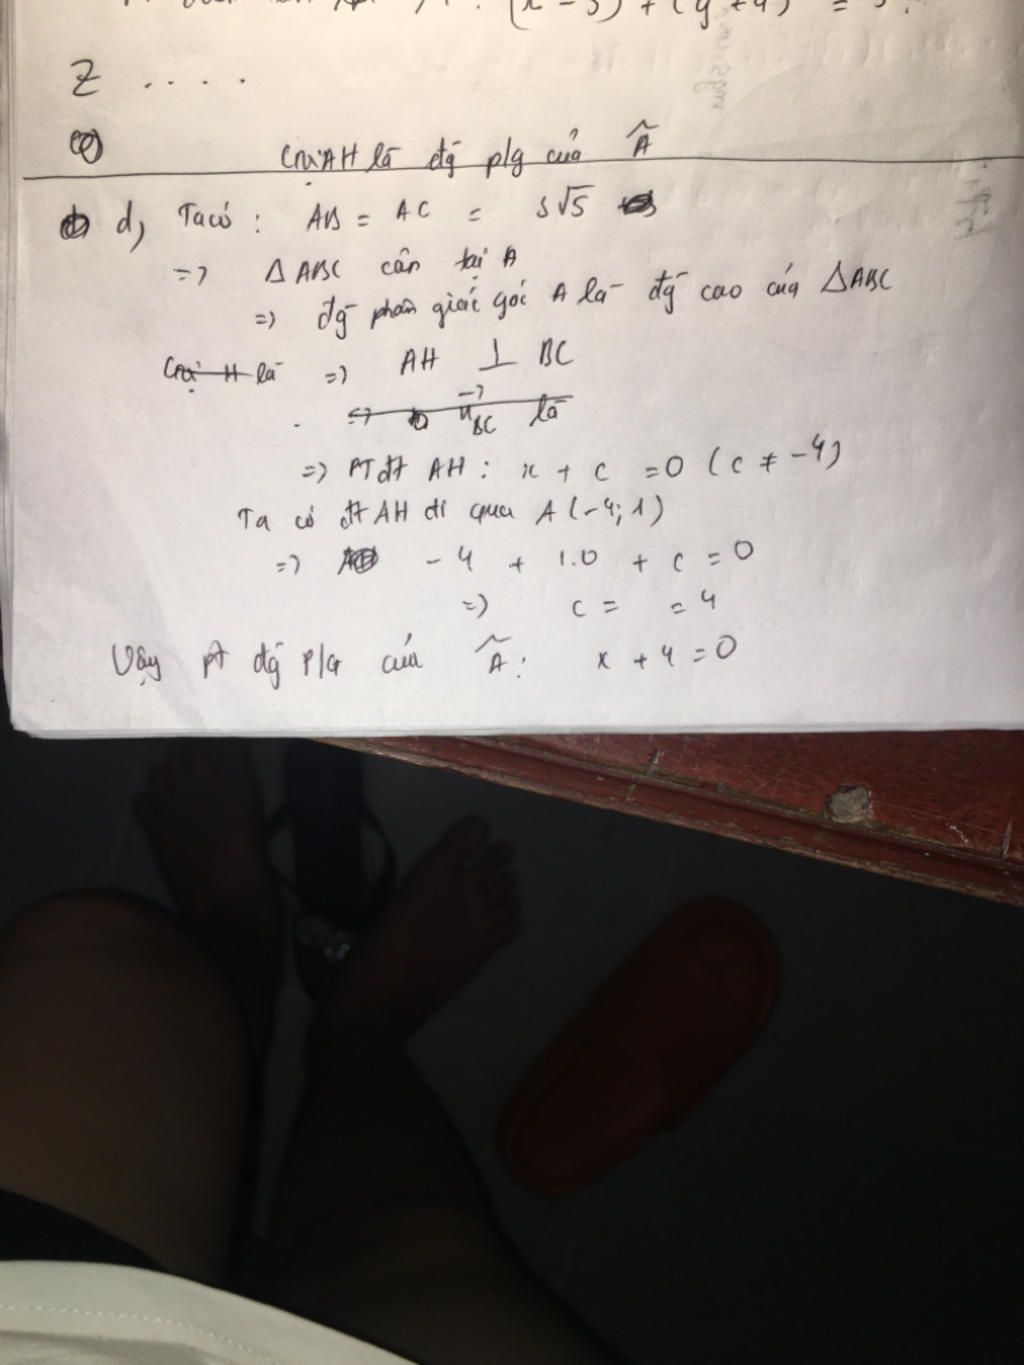 (x - 5) + (y + 4) =
Z ....
Gọi AH là đg p/g của Â
d, Ta có : AB = AC = 3√5
=> Δ ABC cân tại A
=> đg phân giác góc A là đg cao của ΔABC
Gọi H là => AH ⊥ BC
=> n⃗BC là
=> PT đt AH : x + c = 0 ( c ≠ -4)
Ta có đt AH đi qua A (-4; 1)
=> -4 + 1.0 + c = 0
=> c = = 4
Vậy pt đg P/G của Â : x + 4 = 0